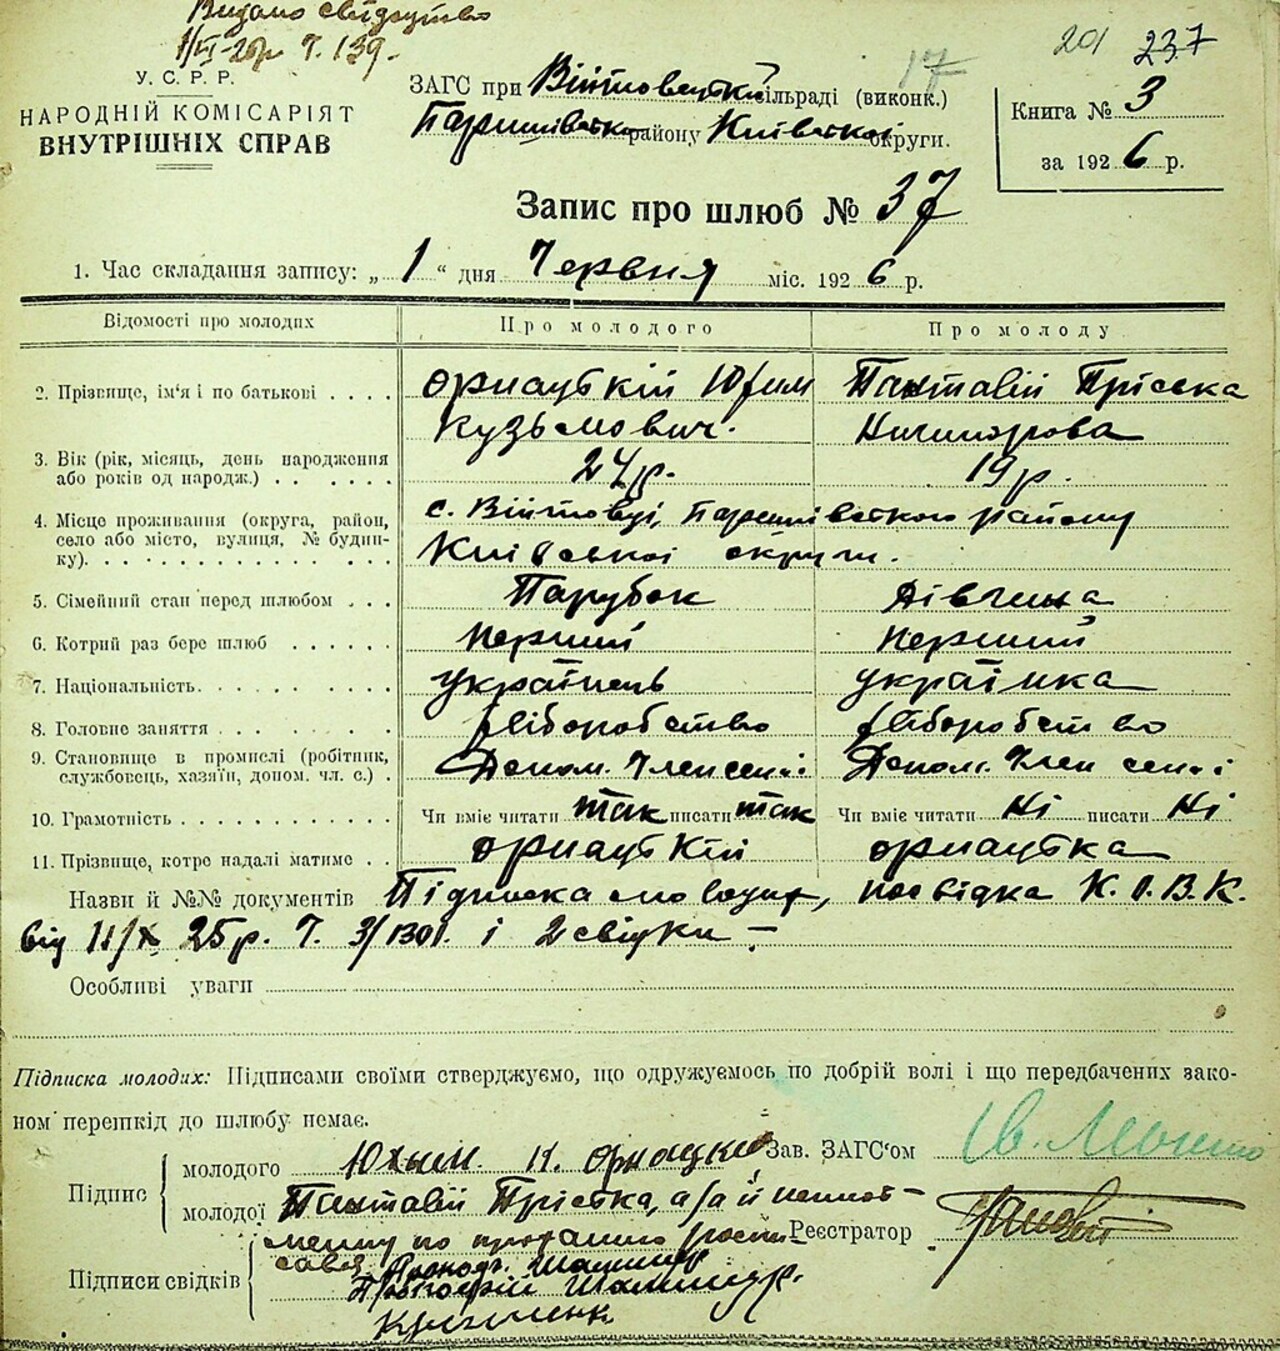 Видано свідоцтво
1/VI-26р Ч. 139.
201 237
17
У. С. Р. Р.
НАРОДНІЙ КОМІСАРІЯТ
ВНУТРІШНІХ СПРАВ
ЗАГС при Війтовецькій сільраді (виконк.)
Баришівського району Київської округи.
Книга № 3
за 1926 р.
Запис про шлюб № 37
1. Час складання запису: „ 1 “ дня Червня міс. 1926 р.
Відомості про молодих Про молодого Про молоду
2. Прізвище, ім‘я і по батькові . . . . Орнацькій Юфим Панталій Пріська
Кузьмович. Ничипорова
3. Вік (рік, місяць, день народження
або років од народж.) . . . . . . . 24р. 19р.
4. Місце проживання (округа, район,
село або місто, вулиця, № будин-
ку). с. Війтовці, Баришівського району
Київської округи.
5. Сімейний стан перед шлюбом . . . Парубок Дівчина
6. Котрий раз бере шлюб . . . . . . Перший Перший
7. Національність. українець українка
8. Головне заняття хліборобство хліборобство
9. Становище в промислі (робітник,
службовець, хазяїн, допом. чл. с.) . Допом. Член семї Допом. Член семї
10. Грамотність Чи вміє читати так писати так Чи вміє читати Ні писати Ні
11. Прізвище, котре надалі матиме . . Орнацькій Орнацька
Назви й №№ документів Підписка молодих, посвідка К. О. В. К.
від 11/X 25р. Ч. 3/1301. і 2 свідки –
Особливі уваги
Підписка молодих: Підписами своїми стверджуємо, що одружуємось по добрій волі і що передбачених зако-
ном перешкід до шлюбу немає.
Підпис
молодого Юхым. К. Орнацкий
Зав. ЗАГС‘ом
молодої Панталій Пріська, а за її неписьменну по проханню росписався
Реєстратор
Підписи свідків